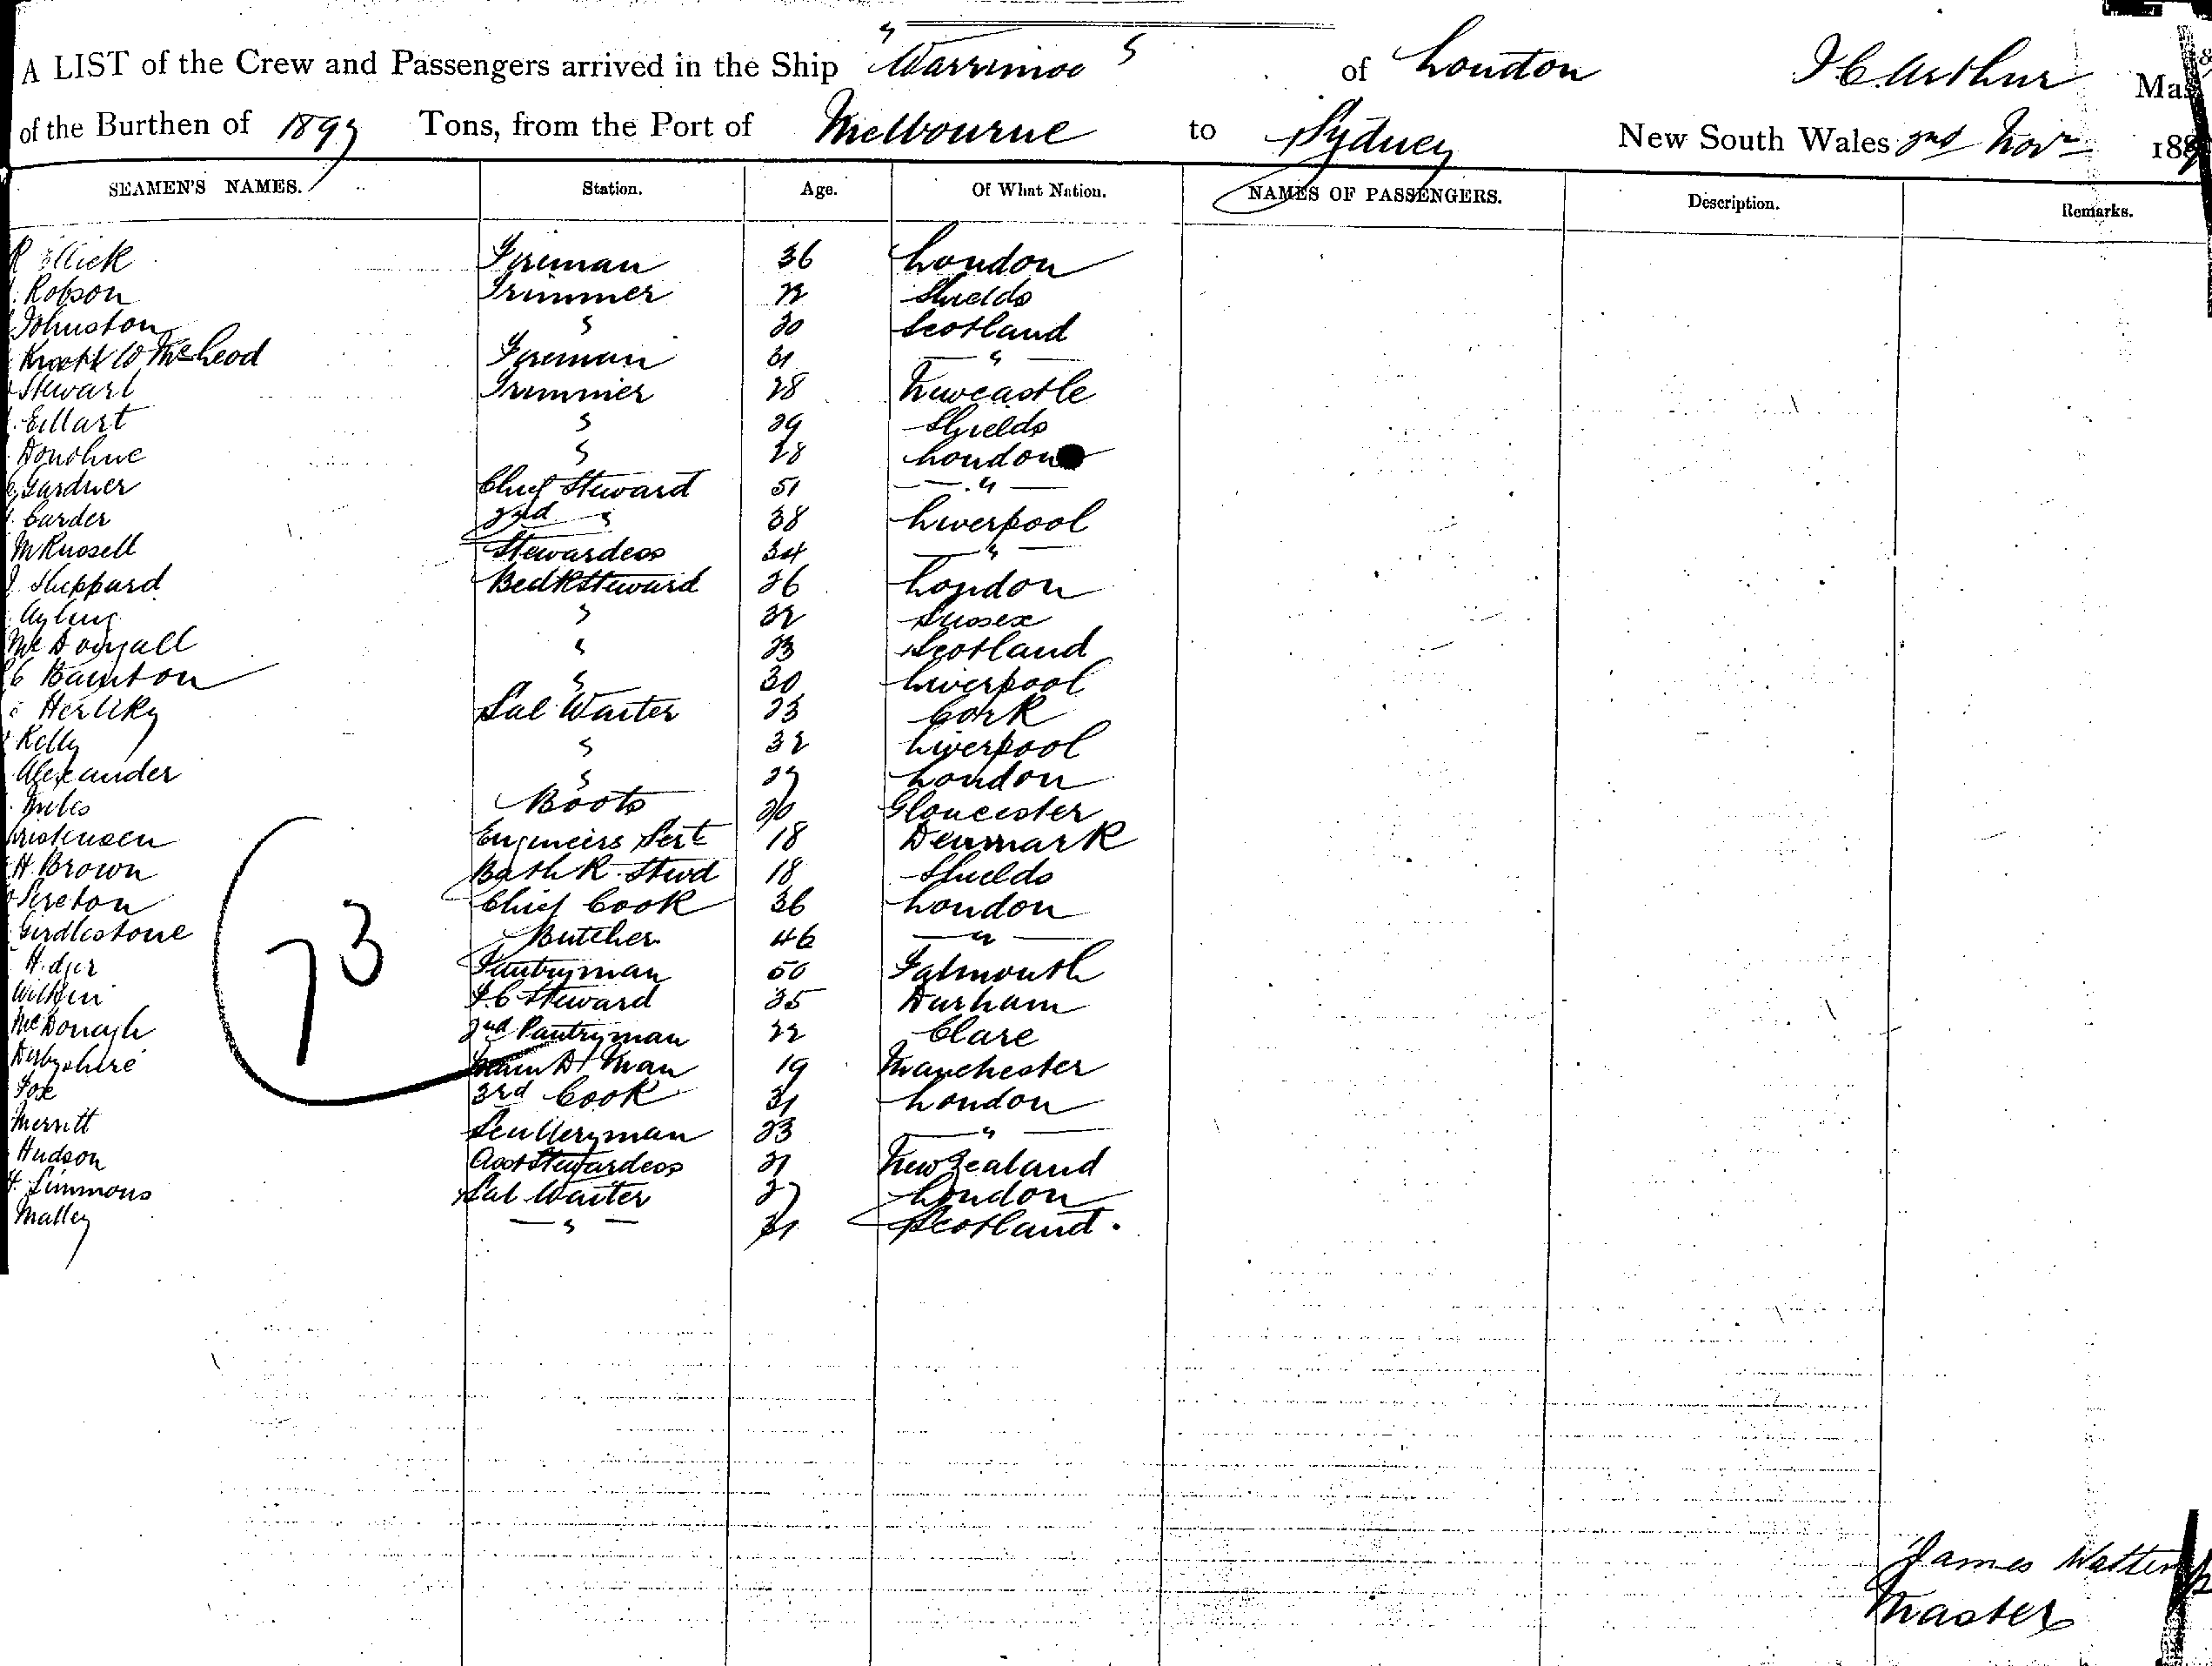 A LIST of the Crew and Passengers arrived in the Ship "Warrimoo" of London J C Arthur Mas
of the Burthen of 1899 Tons, from the Port of Melbourne to Sydney New South Wales 2nd Novr 188
SEAMEN'S NAMES. Station. Age. Of What Nation. NAMES OF PASSENGERS. Description. Remarks.
Fireman 36 London
Robson Trimmer Shields
Johnston " 30 Scotland
McLeod Fireman 31 — " —
Stewart Trimmer 28 Newcastle
Ellart " 29 Shields
Donohue " 28 London
Gardner Chief Steward 51 — " —
Carder 2nd " 38 Liverpool
M Russell Stewardess 34 — " —
J. Sheppard Bed R Steward 26 London
Ayling " 32 Sussex
McDougall " 23 Scotland
C Bainton " 30 Liverpool
Herlihy Sal Waiter 23 Cork
Kelly " 32 Liverpool
Alexander " 27 London
Miles Boots 20 Gloucester
hristensen Engineers Sert 18 Denmark
H. Brown Bath R. Stwd 18 Shields
Sireton Chief Cook 36 London
Girdlestone Butcher 46 — " —
Pantryman 50 Falmouth
Wilkin F.C Steward 35 Durham
McDonagh 2nd Pantryman 22 Clare
Derbyshire Man 19 Manchester
Fox 3rd Cook 31 London
Merritt Sculleryman 23 — " —
Hudson Asst Stewardess 31 New Zealand
H. Simmons Sal Waiter 27 London
Malley — " — 31 Scotland.
73
James Watten
Master